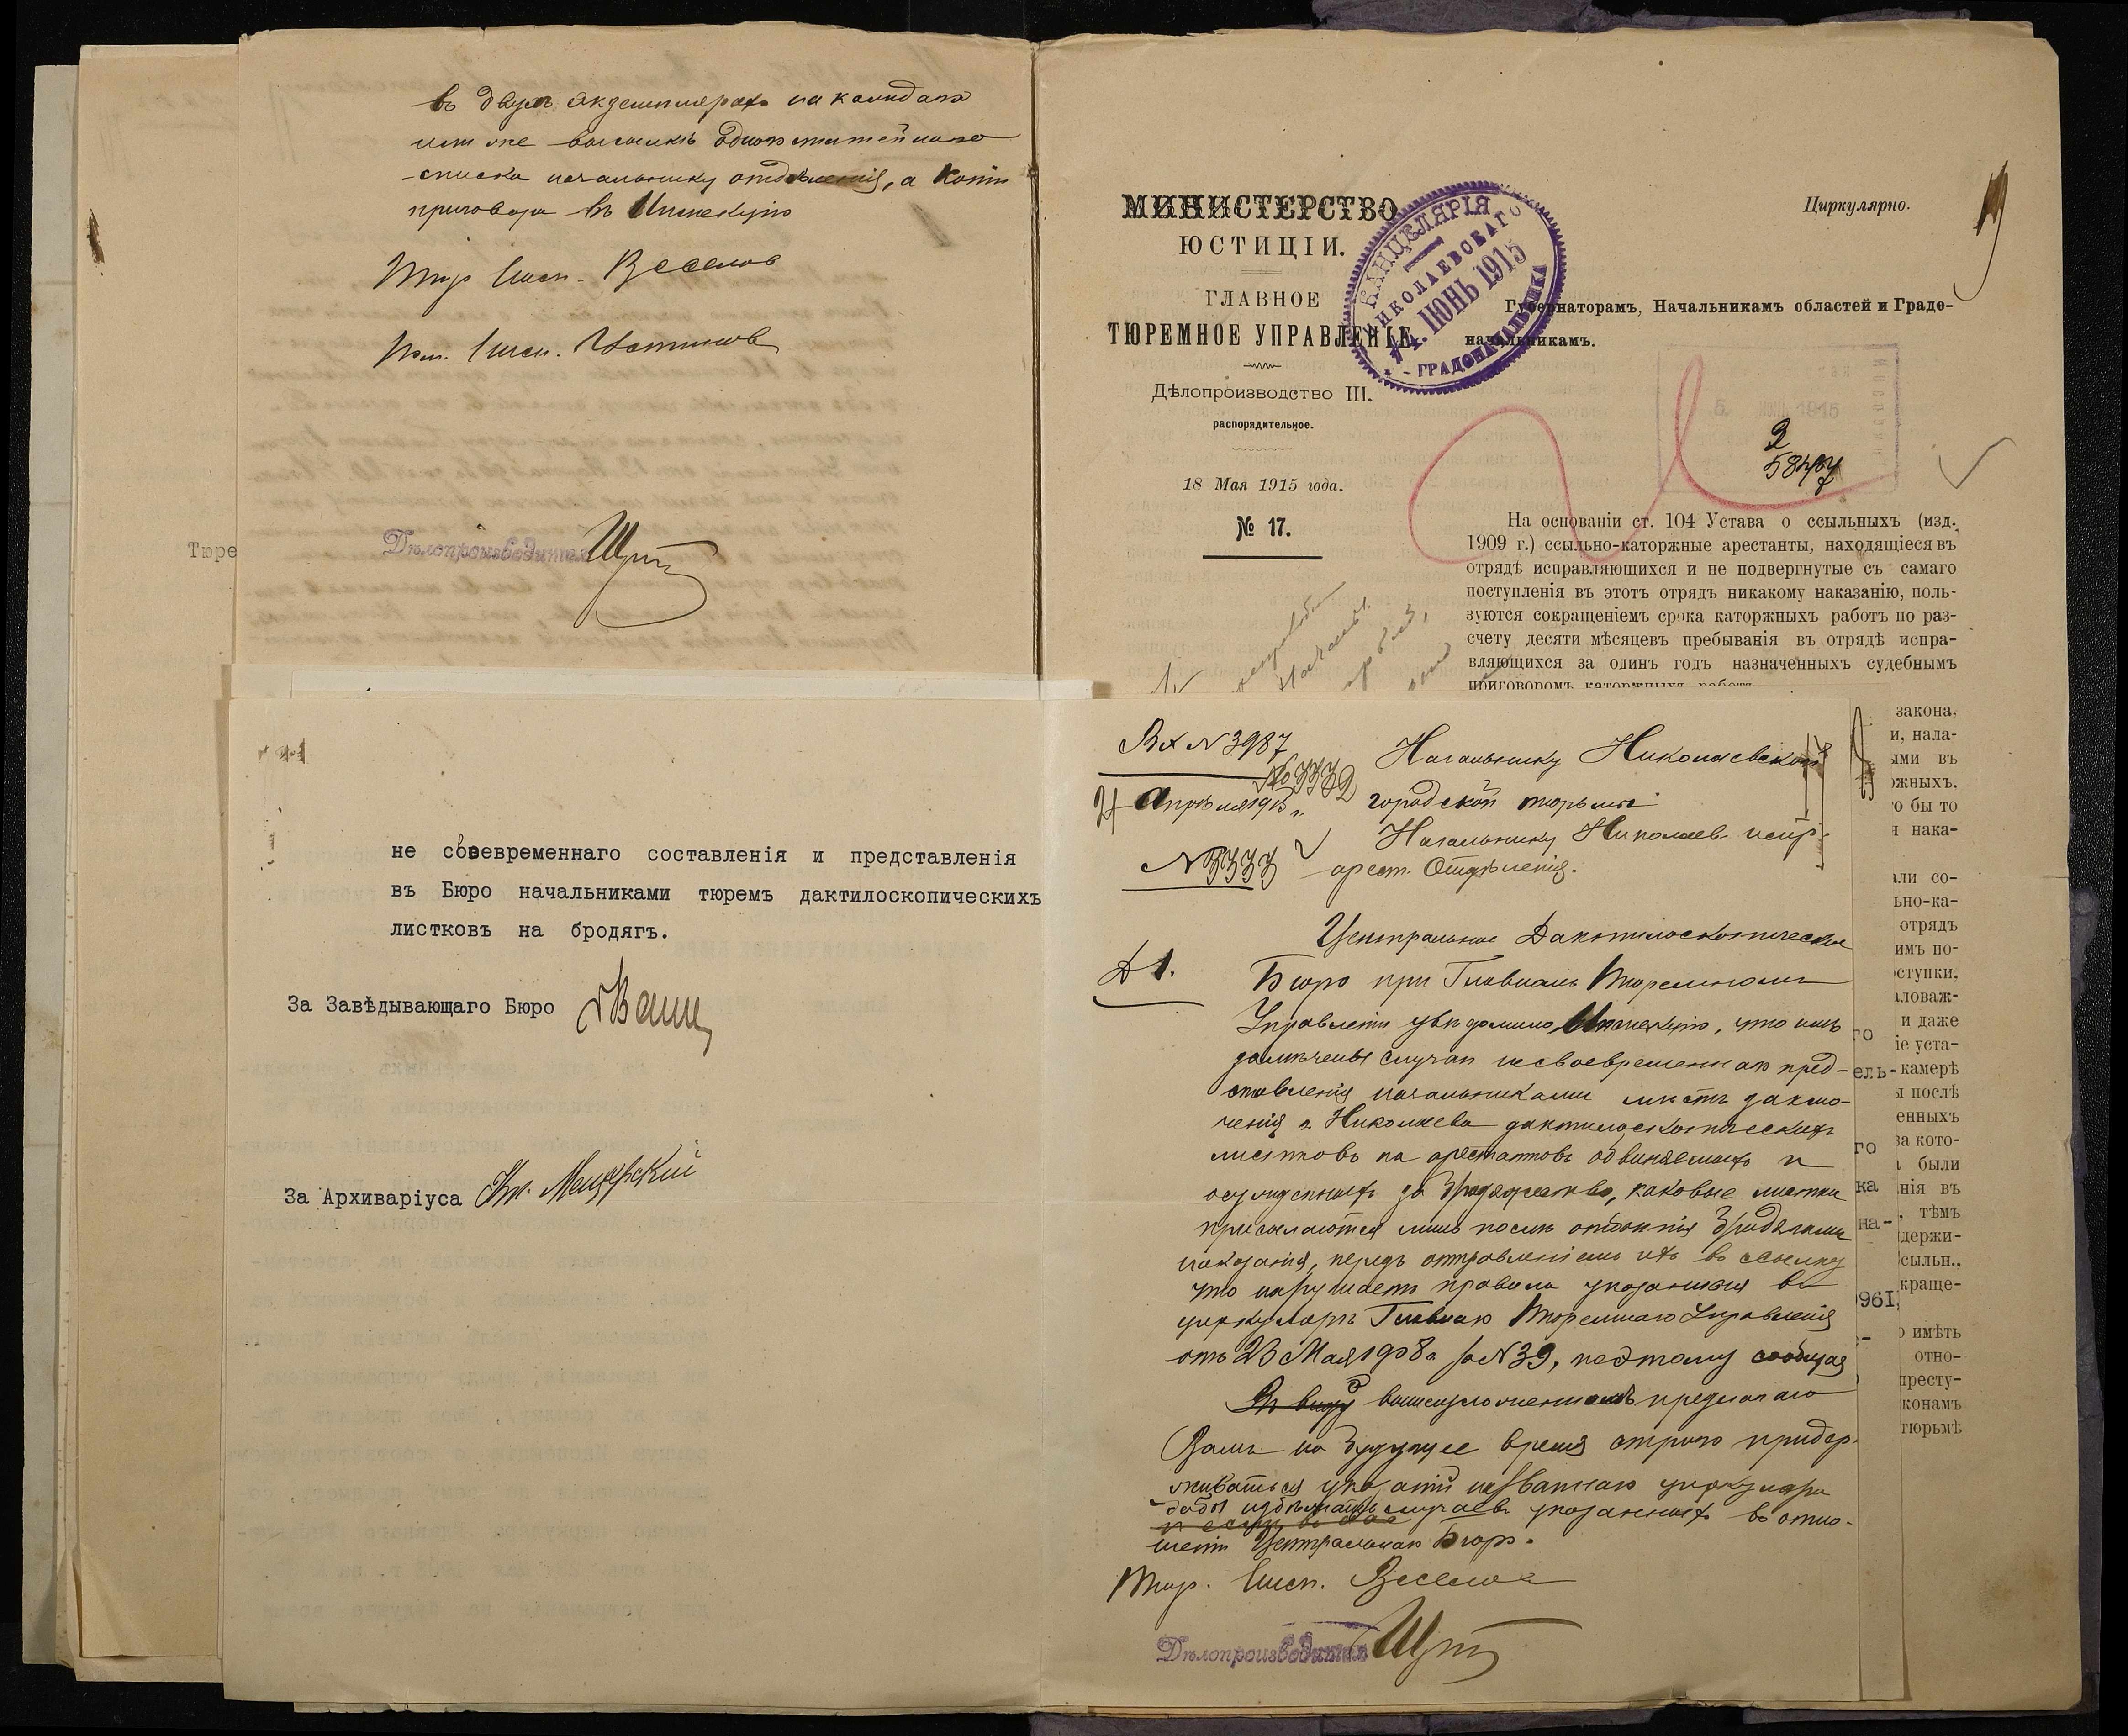 въ двухъ экземплярахъ на каждаго
или же высылкѣ одного статейнаго
списка начальнику отдѣленія, а копіи
приговора въ Инспекцію
Тюр. Инсп. Веселов
Пом. Инсп.
Дѣлопроизводитель
Тюре
МИНИСТЕРСТВО
ЮСТИЦІИ.
ГЛАВНОЕ
ТЮРЕМНОЕ УПРАВЛЕНІЕ
Дѣлопроизводство III.
распорядительное.
18 Мая 1915 года.
№ 17.
КАНЦЕЛЯРІЯ
НИКОЛАЕВСКАГО
ІЮНЬ 1915
ГРАДОНАЧАЛЬНИКА
Циркулярно.
Губернаторамъ, Начальникамъ областей и Градо-
начальникамъ.
1915
На основаніи ст. 104 Устава о ссыльныхъ (изд.
1909 г.) ссыльно-каторжные арестанты, находящіеся въ
отрядѣ исправляющихся и не подвергнутые съ самаго
поступленія въ этотъ отрядъ никакому наказанію, поль-
зуются сокращеніемъ срока каторжныхъ работъ по раз-
счету десяти мѣсяцевъ пребыванія въ отрядѣ испра-
вляющихся за одинъ годъ назначенныхъ судебнымъ
приговоромъ каторжныхъ работъ
не своевременнаго составленія и представленія
въ Бюро начальниками тюремъ дактилоскопическихъ
листковъ на бродягъ.
За Завѣдывающаго Бюро
За Архиваріуса Кн. Мещерскій
Вх № 3987
№ 3332
Апрѣля 1915 г.
№ 3333
Начальнику Николаевской
городской тюрьмы
Начальнику Николаев. испр.
арест. Отдѣленія.
Д 1.
Центральное Дактилоскопическое
Бюро при Главномъ Тюремномъ
Управленіи увѣдомило Инспекцію, что имъ
замѣчены случаи несвоевременнаго пред-
ставленія начальниками мѣстъ заклю-
ченія г. Николаева дактилоскопическихъ
листковъ на арестантовъ обвиняемыхъ и
осужденныхъ за бродяжество, каковые листки
присылаются лишь послѣ отбытія бродягами
наказанія, передъ отправленіемъ ихъ въ ссылку
что нарушаетъ правила указанныя въ
циркулярѣ Главнаго Тюремнаго Управленія
отъ 23 Мая 1908 г за № 39, поэтому сообщая
Въ виду о вышеизложенномъ предлагаю
Вамъ на будущее время строго придер-
живаться указаній названнаго циркуляра
дабы избѣжать случаевъ указанныхъ въ отно-
шеніи Центральнаго Бюро.
Тюр. Инсп. Веселов
Дѣлопроизводитель
го
ель-
го
ка
на-
961,
закона,
и, нала-
ыми въ
жныхъ.
о бы то
и нака-
али со-
ьно-ка-
отрядъ
имъ по-
оступки,
аловаж-
и даже
іе уста-
камерѣ
ы послѣ
енныхъ
за кото-
были
нія въ
, тѣмъ
держи-
сыльн.,
краще-
о имѣть
отно-
престу-
конамъ
тюрьмѣ